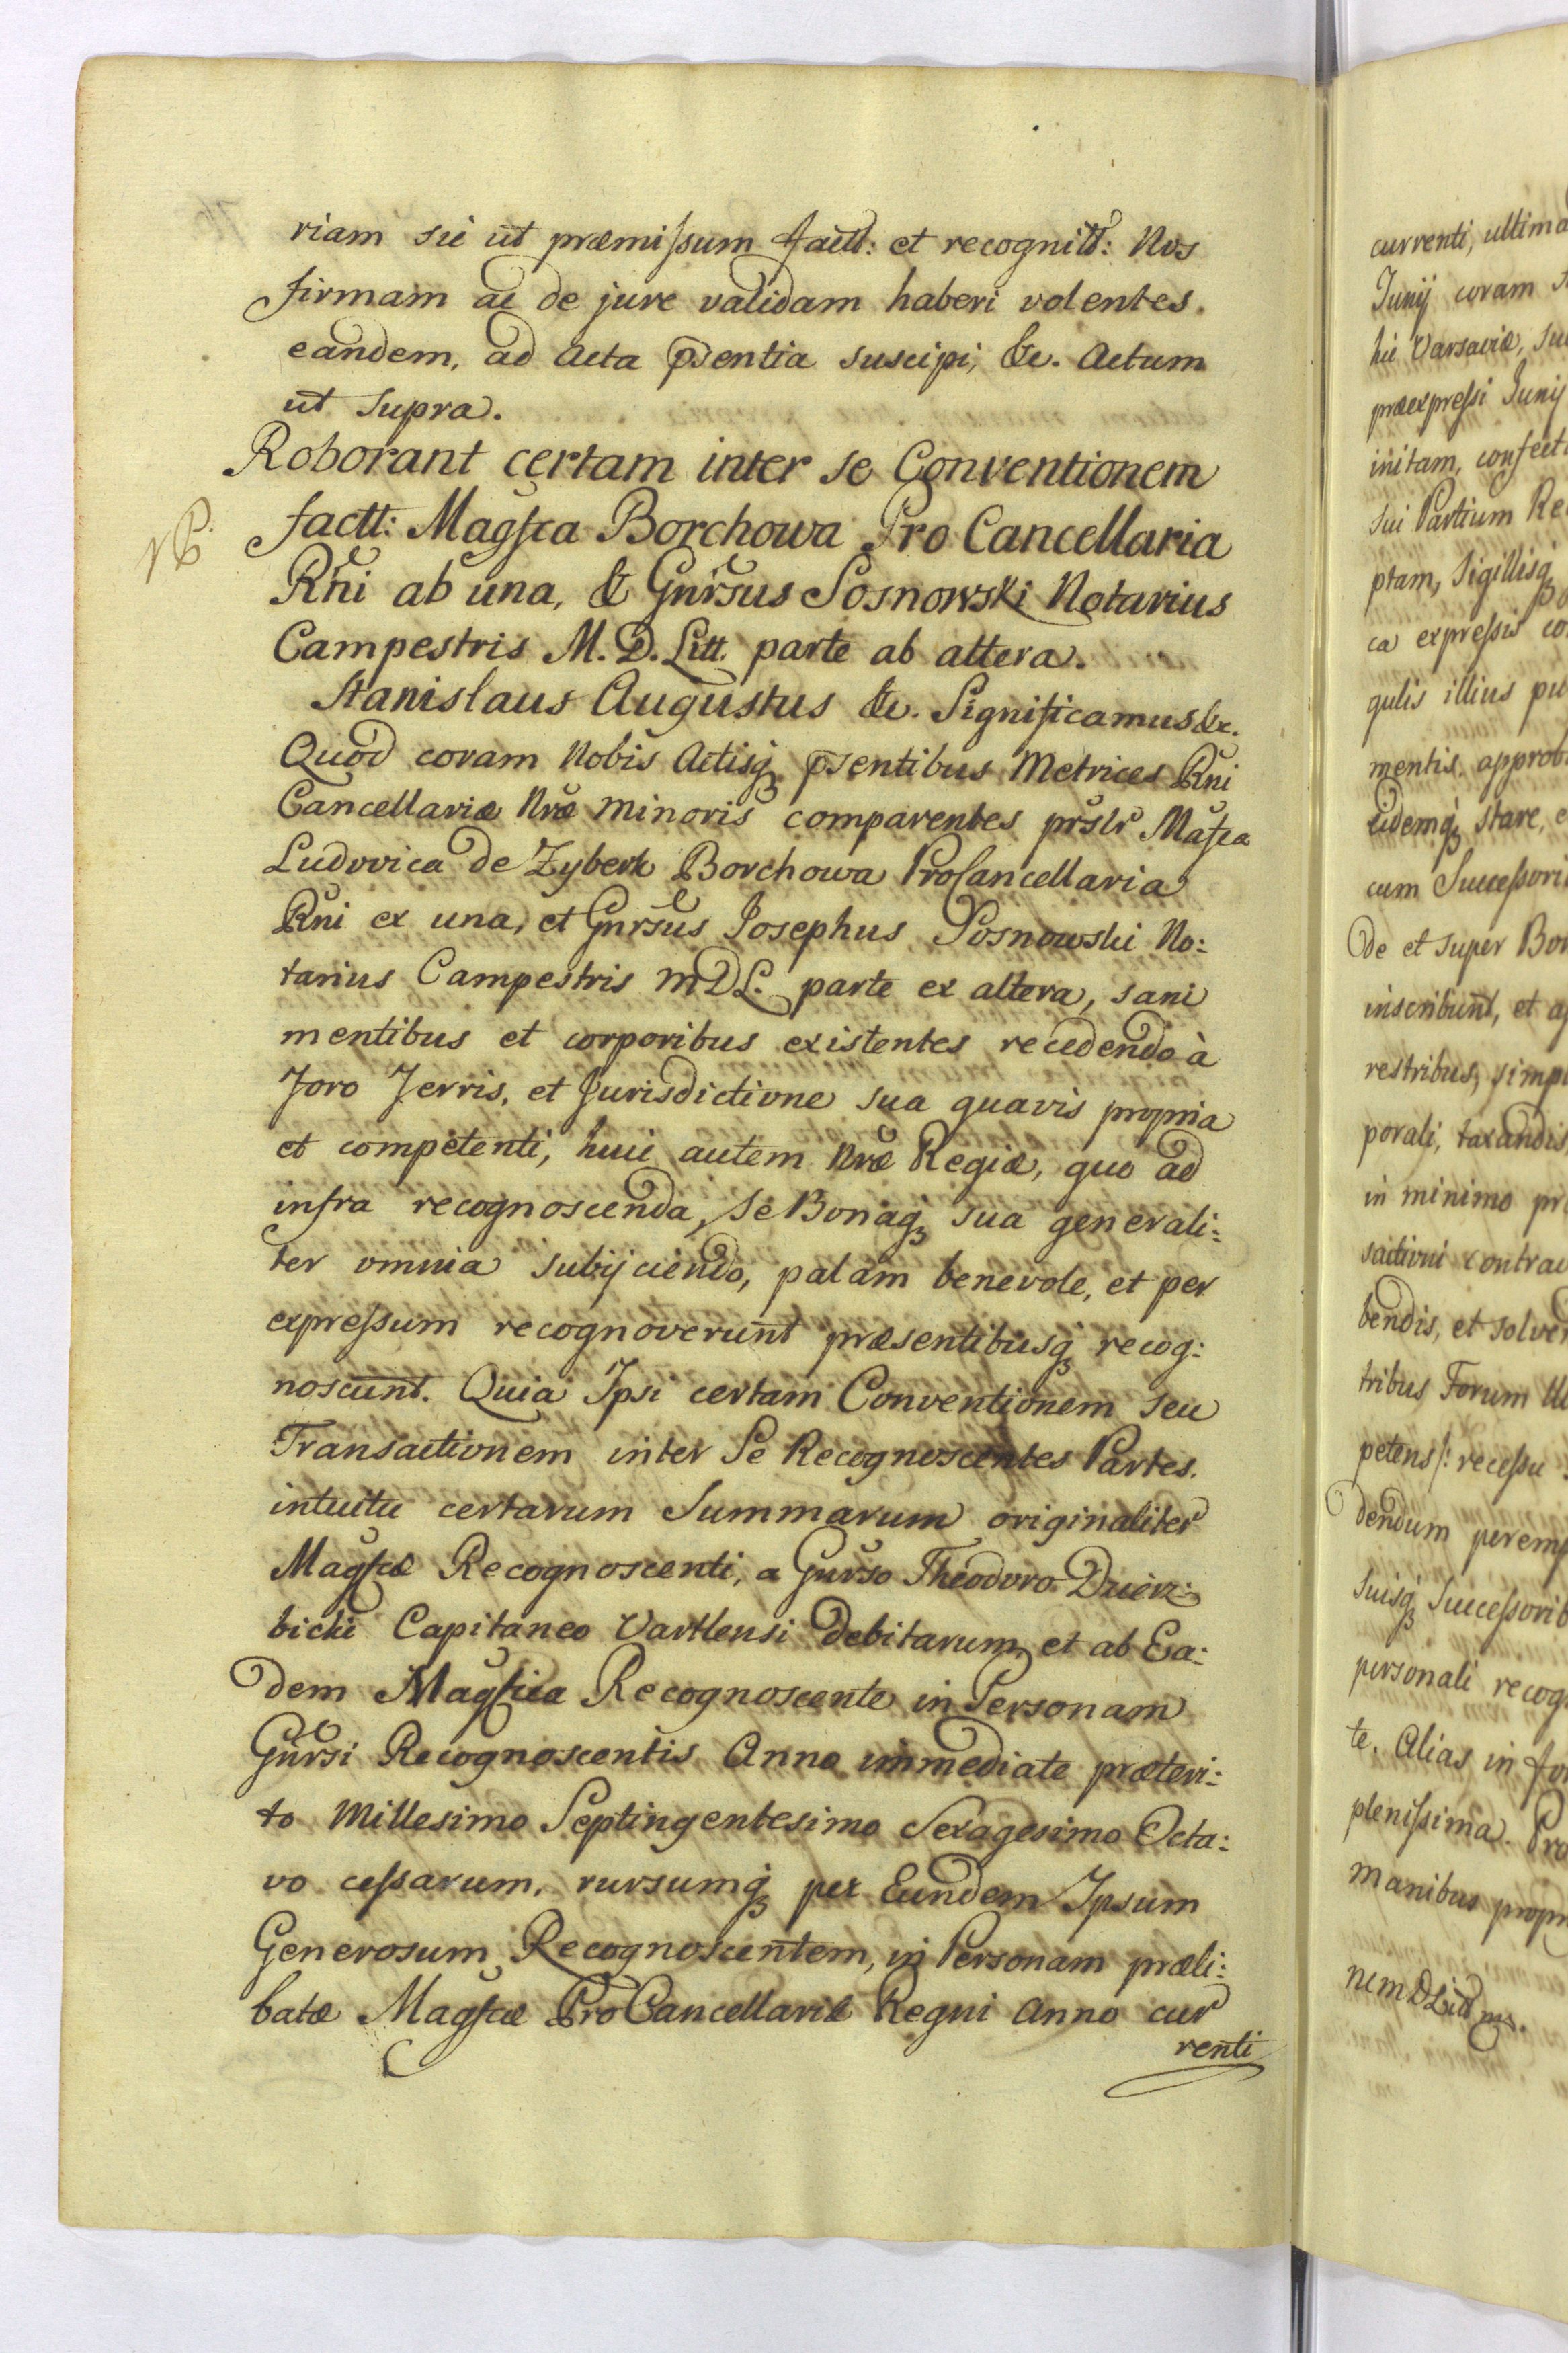 riam sic ut præmissum factt: et recognitt: Nos
firmam ac de jure validam haberi volentes.
eandem, ad Acta psentia suscipi, &c. Actum
ut supra.
Roborant certam inter se Conventionem
factt: Magfca Borchowa Pro Cancellaria
Rni ab una, & Gnrsus Sosnowski Notarius
Campestris M. D. Litt. parte ab altera.
Stanislaus Augustus &c. Significamus &c.
Quod coram Nobis Actisq psentibus Metrices Rni
Cancellariæ Nræ minoris comparentes prslr Mafca
Ludovica de Zyberk Borchowa ProCancellaria
Rni ex una, et Gnrsus Josephus Sosnowski No:
tarius Campestris MDL. parte ex altera, sani
mentibus et corporibus existentes recedendo à
Foro Terris, et Jurisdictione sua quavis propria
et competenti, huic autem Nræ Regiæ, quo ad
infra recognoscenda, se Bonaq sua generali:
ter omnia subijciendo, palam benevole, et per
expressum recognoverunt præsentibusq recog:
noscunt. Quia Ipsi certam Conventionem seu
Transactionem inter Se Recognoscentes Partes.
intuitu certarum Summarum originaliter
Magfcæ Recognoscenti, a Gnrso Theodoro Dzierz:
bicki Capitaneo Vartlensi debitarum, et ab Ea:
dem Magfica Recognoscente in Personam
Gnrsi Recognoscentis Anno immediate præteri:
to Millesimo Septingentesimo Sexagesimo Octa:
vo cessarum, rursumq per Eundem Ipsum
Generosum Recognoscentem, in Personam præli:
batæ Magfcæ ProCancellariæ Regni Anno cur
renti
currenti, ultima
Junij coram
hic Varsaviæ,
præexpressi Junij
initam,
sui Partium
ptam, sigillisq
ca expressis
gulis illius
mentis,
eidemq stare,
cum
de et super
inscribunt, et
restribus,
porali, taxandis
in minimo
sactioni
bendis, et
tribus Forum
petens/: recessu
dendum
suisq
personali
te. Alias in
plenissima.
manibus